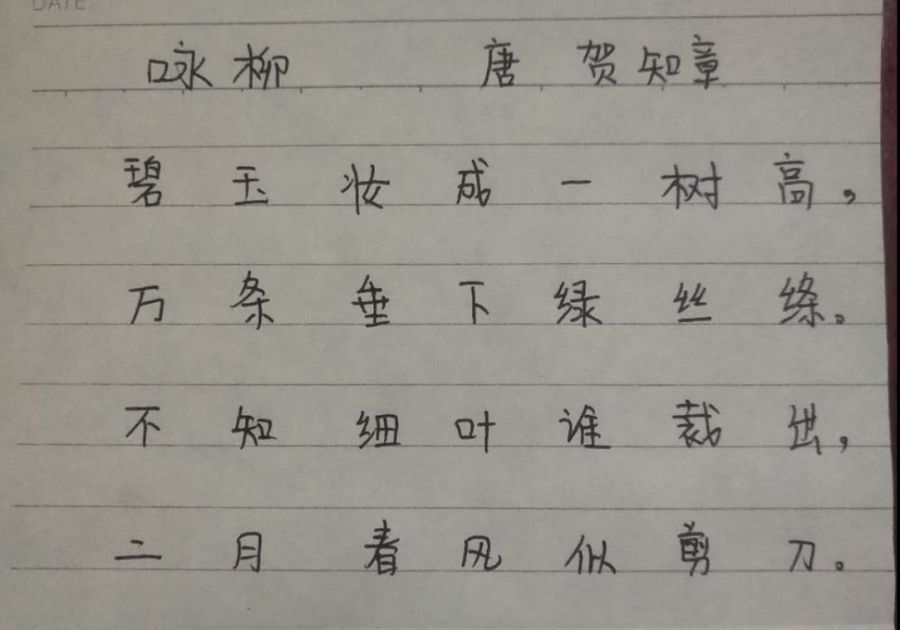 DATE:
咏柳 唐 贺知章
碧玉妆成一树高，
万条垂下绿丝绦。
不知细叶谁裁出，
二月春风似剪刀。